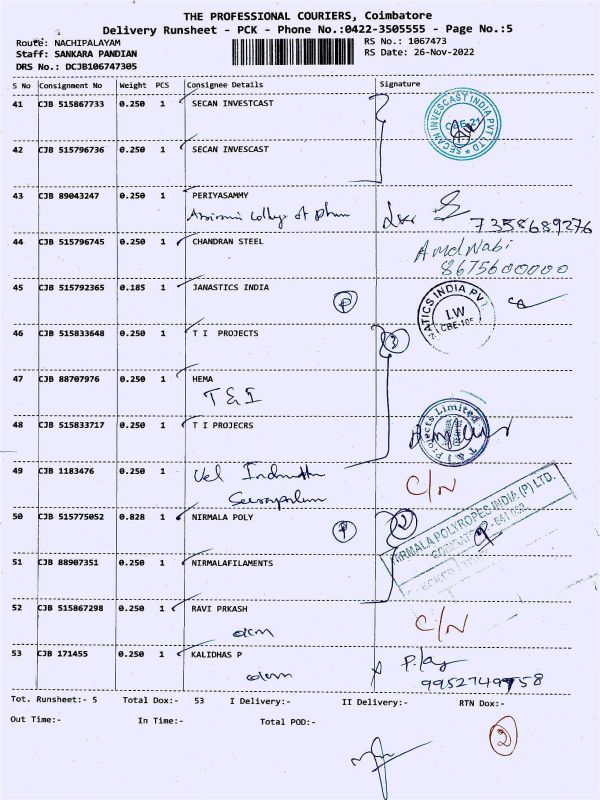 THE PROFESSIONAL COURIERS, Coimbatore
Delivery Runsheet - PCK - Phone No.:0422-3505555 - Page No.:5
Route: NACHIPALAYAM
Staff: SANKARA PANDIAN
DRS No.: DCJB106747305
RS No.: 1067473
RS Date: 26-Nov-2022
S No Consignment No Weight PCS Consignee Details Signature
41 CJB 515867733 0.250 1 SECAN INVESTCAST
SECAN INVESCAST INDIA PVT LTD
CBE-21
42 CJB 515796736 0.250 1 SECAN INVESCAST
43 CJB 89043247 0.250 1 PERIYASAMMY
College of Pham
7358689276
44 CJB 515796745 0.250 1 CHANDRAN STEEL
Amd Nabi
8675600000
45 CJB 515792365 0.185 1 JANASTICS INDIA
P
ATICS INDIA PV
I.W
CBE-105
46 CJB 515833648 0.250 1 T I PROJECTS
3
47 CJB 88707976 0.250 1 HEMA
T & I
48 CJB 515833717 0.250 1 T I PROJECRS
T & I Projects Limited
49 CJB 1183476 0.250 1 Vel
C/N
50 CJB 515775052 0.828 1 NIRMALA POLY
P
2
NIRMALA POLYROPES INDIA (P) LTD.
51 CJB 88907351 0.250 1 NIRMALAFILAMENTS
52 CJB 515867298 0.250 1 RAVI PRKASH
C/N
53 CJB 171455 0.250 1 KALIDHAS P
9952749758
Tot. Runsheet:- 5 Total Dox:- 53 I Delivery:- II Delivery:- RTN Dox:-
Out Time:- In Time:- Total POD:-
2